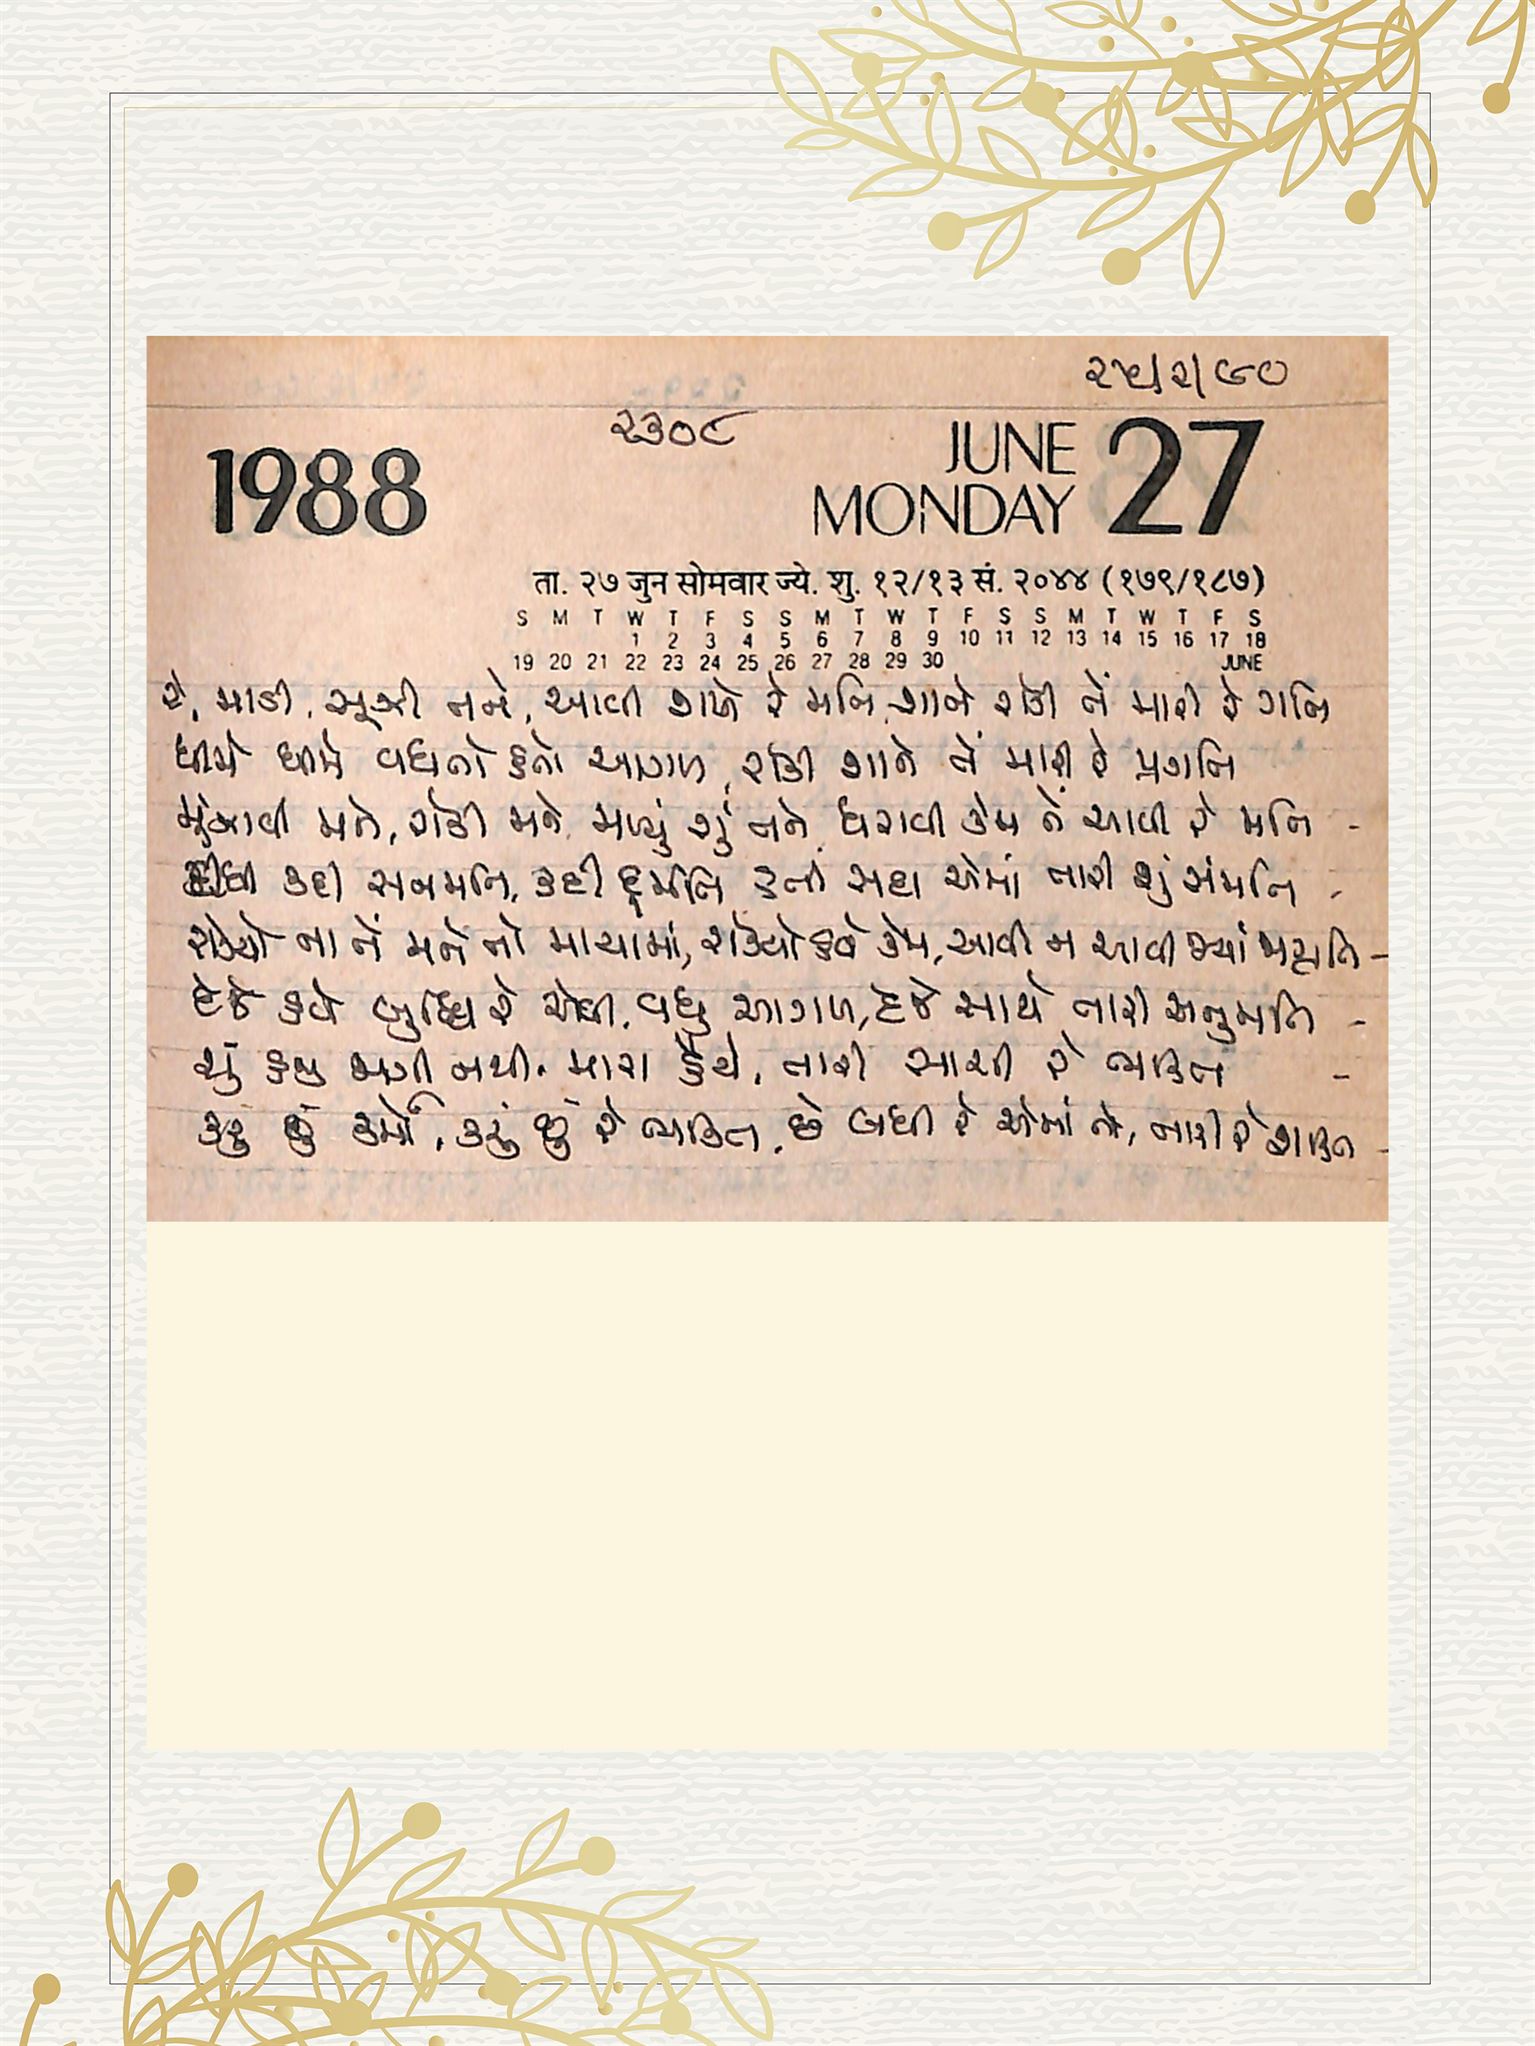 ૨૫/૨/૯૦
૨૩૦૮
1988
JUNE
MONDAY 27
ता. २७ जुन सोमवार ज्ये. शु. १२/१३ सं. २०४४ (१७९/१८७)
S M T W T F S S M T W T F S S M T W T F S
1 2 3 4 5 6 7 8 9 10 11 12 13 14 15 16 17 18
19 20 21 22 23 24 25 26 27 28 29 30 JUNE
રે, માડી, સૂઝી તને, આવી શાને રે મતિ, શાને રોકી તેં મારી રે ગતિ
ધીમે ધીમે વધતો હતો આગળ, રોકી શાને તેં મારી રે પ્રગતિ
મુંઝાવી મને, રોકી મને, મળ્યું શું તને, ધરાવી કેમ તેં આવી રે મતિ -
દીધી કદી સનમતિ, કદી દુર્મતિ હતી સદા એમાં તારી શું સંમતિ -
રોક્યો ના તેં મને તો માયામાં, રોક્યો હવે કેમ, આવી ન આવી જ્યાં જાગૃતિ -
દેજે હવે બુદ્ધિ રે એવી, વધુ આગળ, દેજે સાથે તારી અનુમતિ -
શું હજુ જાગી નથી, મારા હૈયે, તારી સાચી રે ભક્તિ -
કરું છું કર્મો, કરું છું રે ભક્તિ, છે બધી રે એમાં તો, તારી રે શક્તિ -